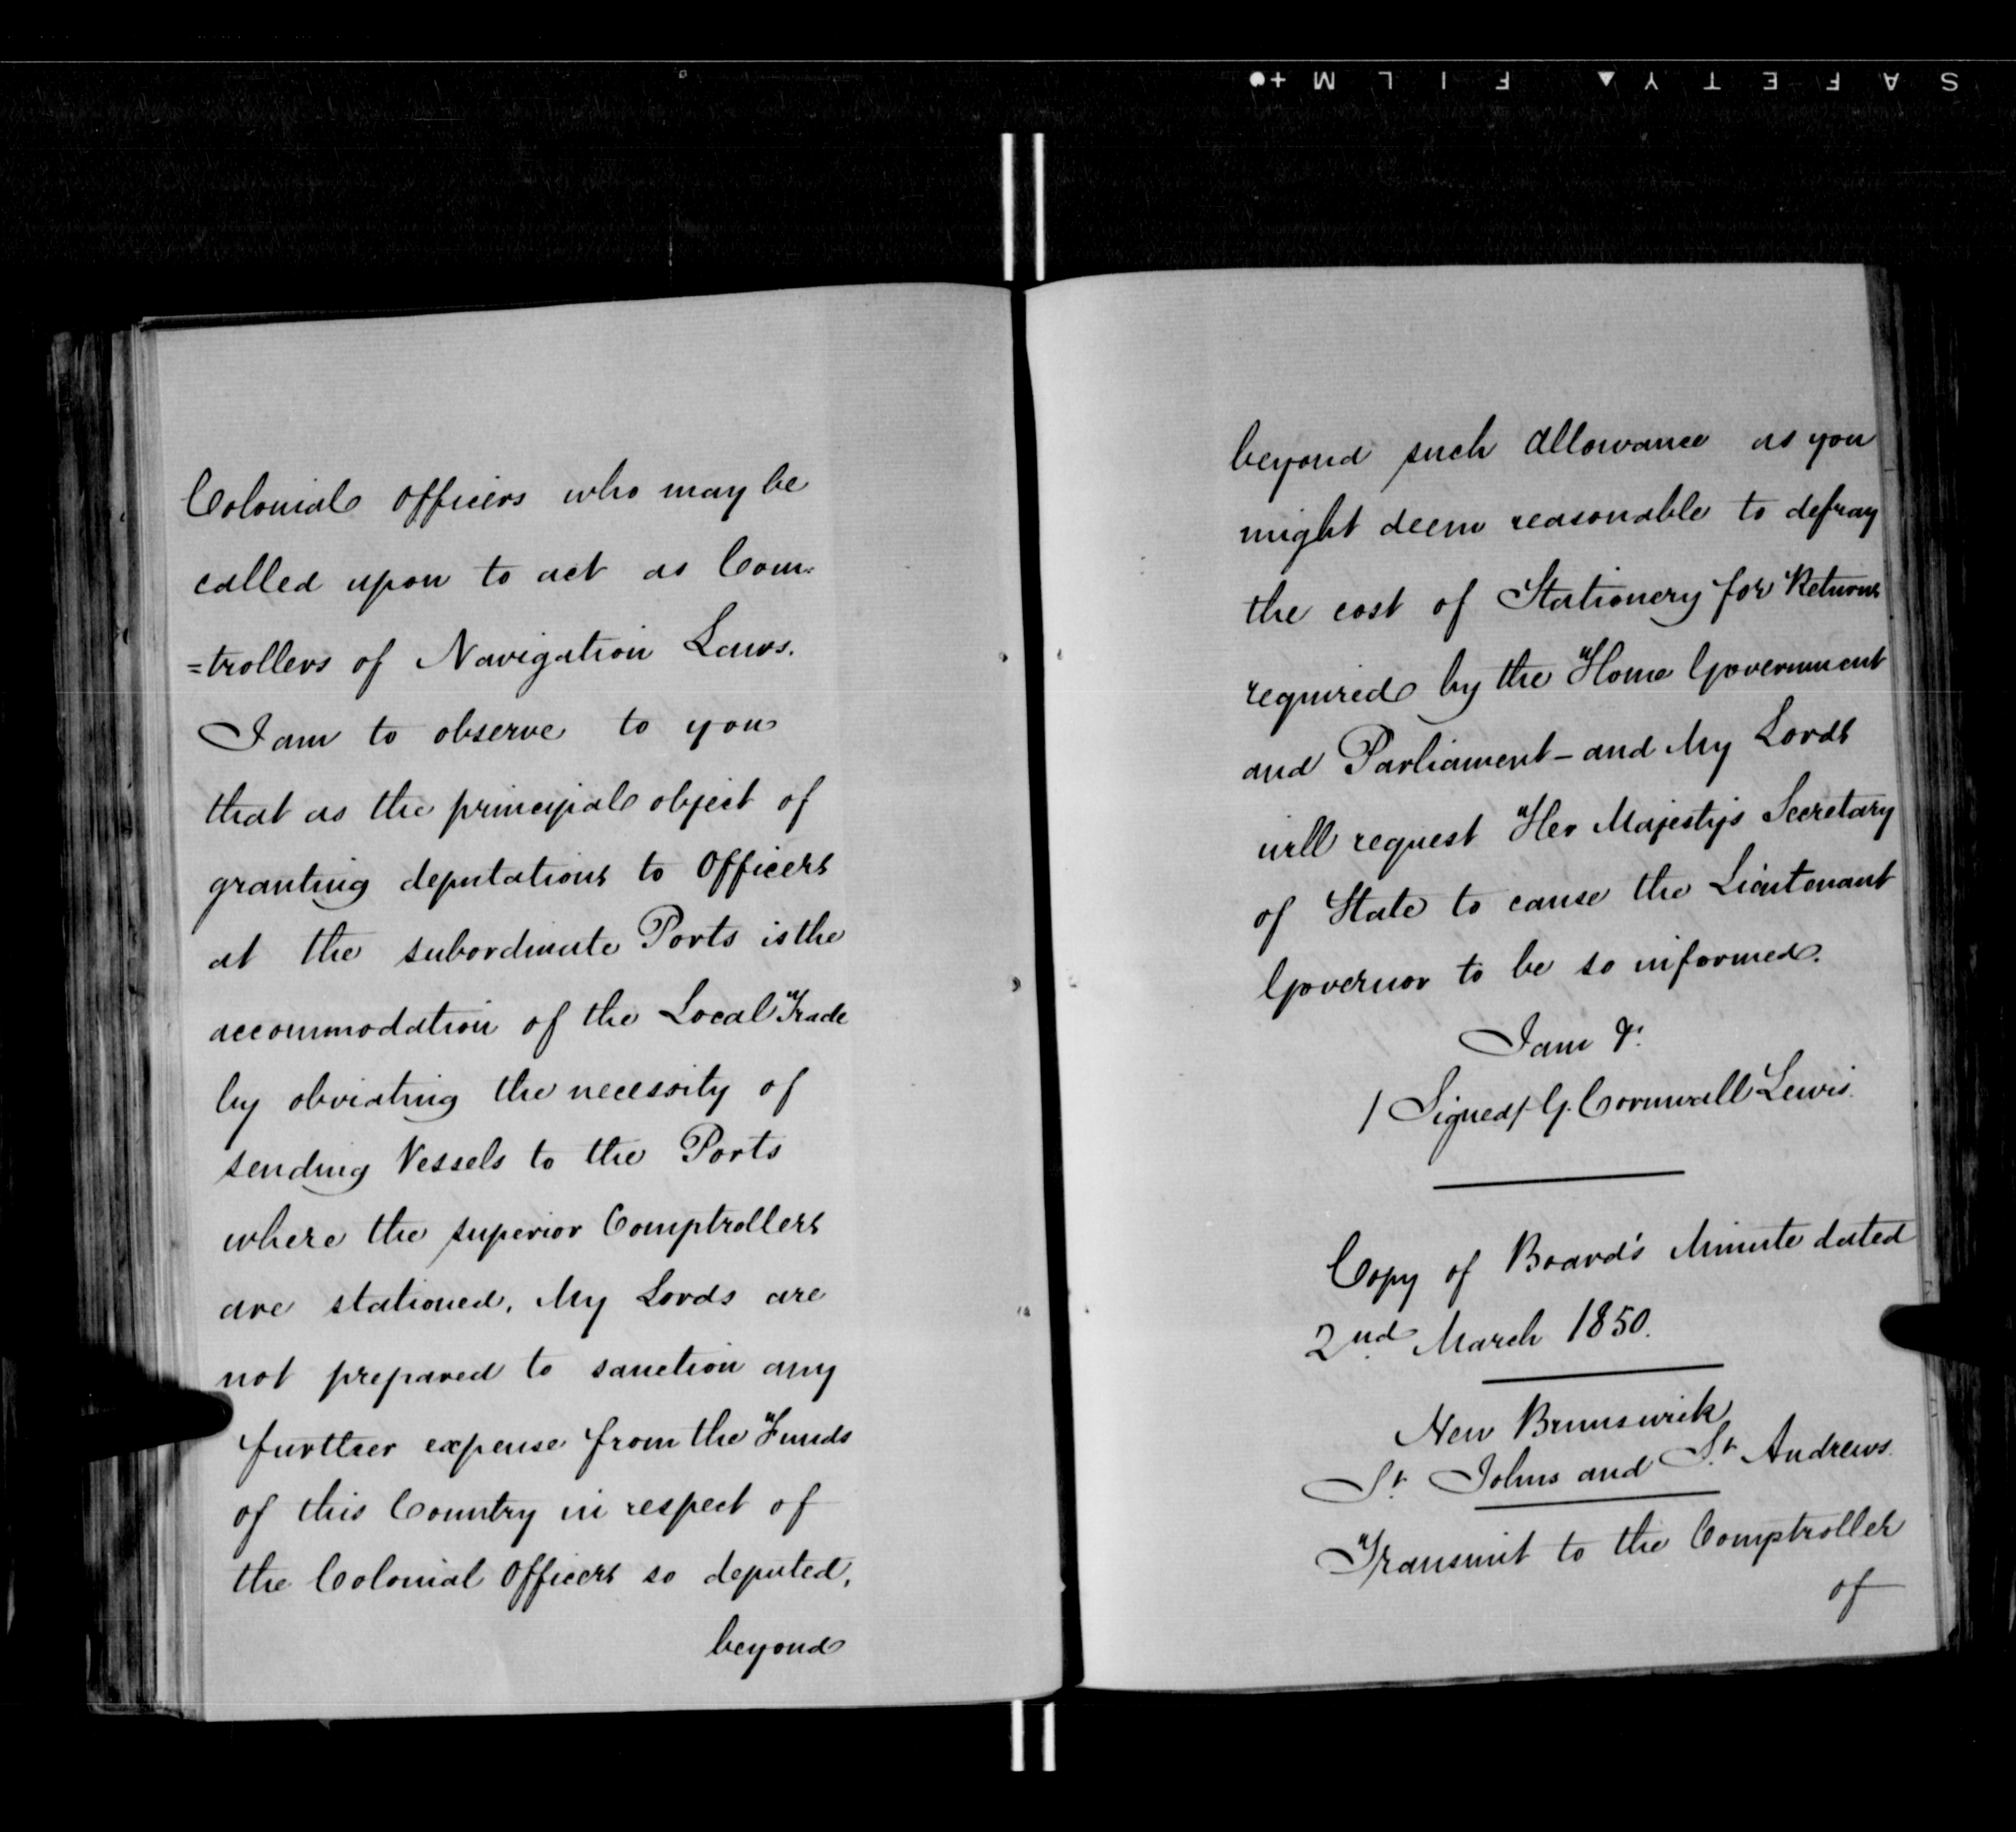 SAFETY▲FILM+●
Colonial Officers who may be
called upon to act as Com=
=trollers of Navigation Laws.
I am to observe to you
that as the principal object of
granting deputations to Officers
at the subordinate Ports is the
accommodation of the Local Trade
by obviating the necessity of
sending Vessels to the Ports
where the superior Comptrollers
are stationed, My Lords are
not prepared to sanction any
further expense from the Funds
of this Country in respect of
the Colonial Officers so deputed,
beyond
beyond such allowance as you
might deem reasonable to defray
the cost of Stationery for Returns
required by the Home Government
and Parliament – and My Lords
will request Her Majesty's Secretary
of State to cause the Lieutenant
Governor to be so informed.
I am &c
/Signed/ G. Cornwall Lewis.
Copy of Board's Minute dated
2nd March 1850.
New Brunswick
St. Johns and St. Andrews.
Transmit to the Comptroller
of